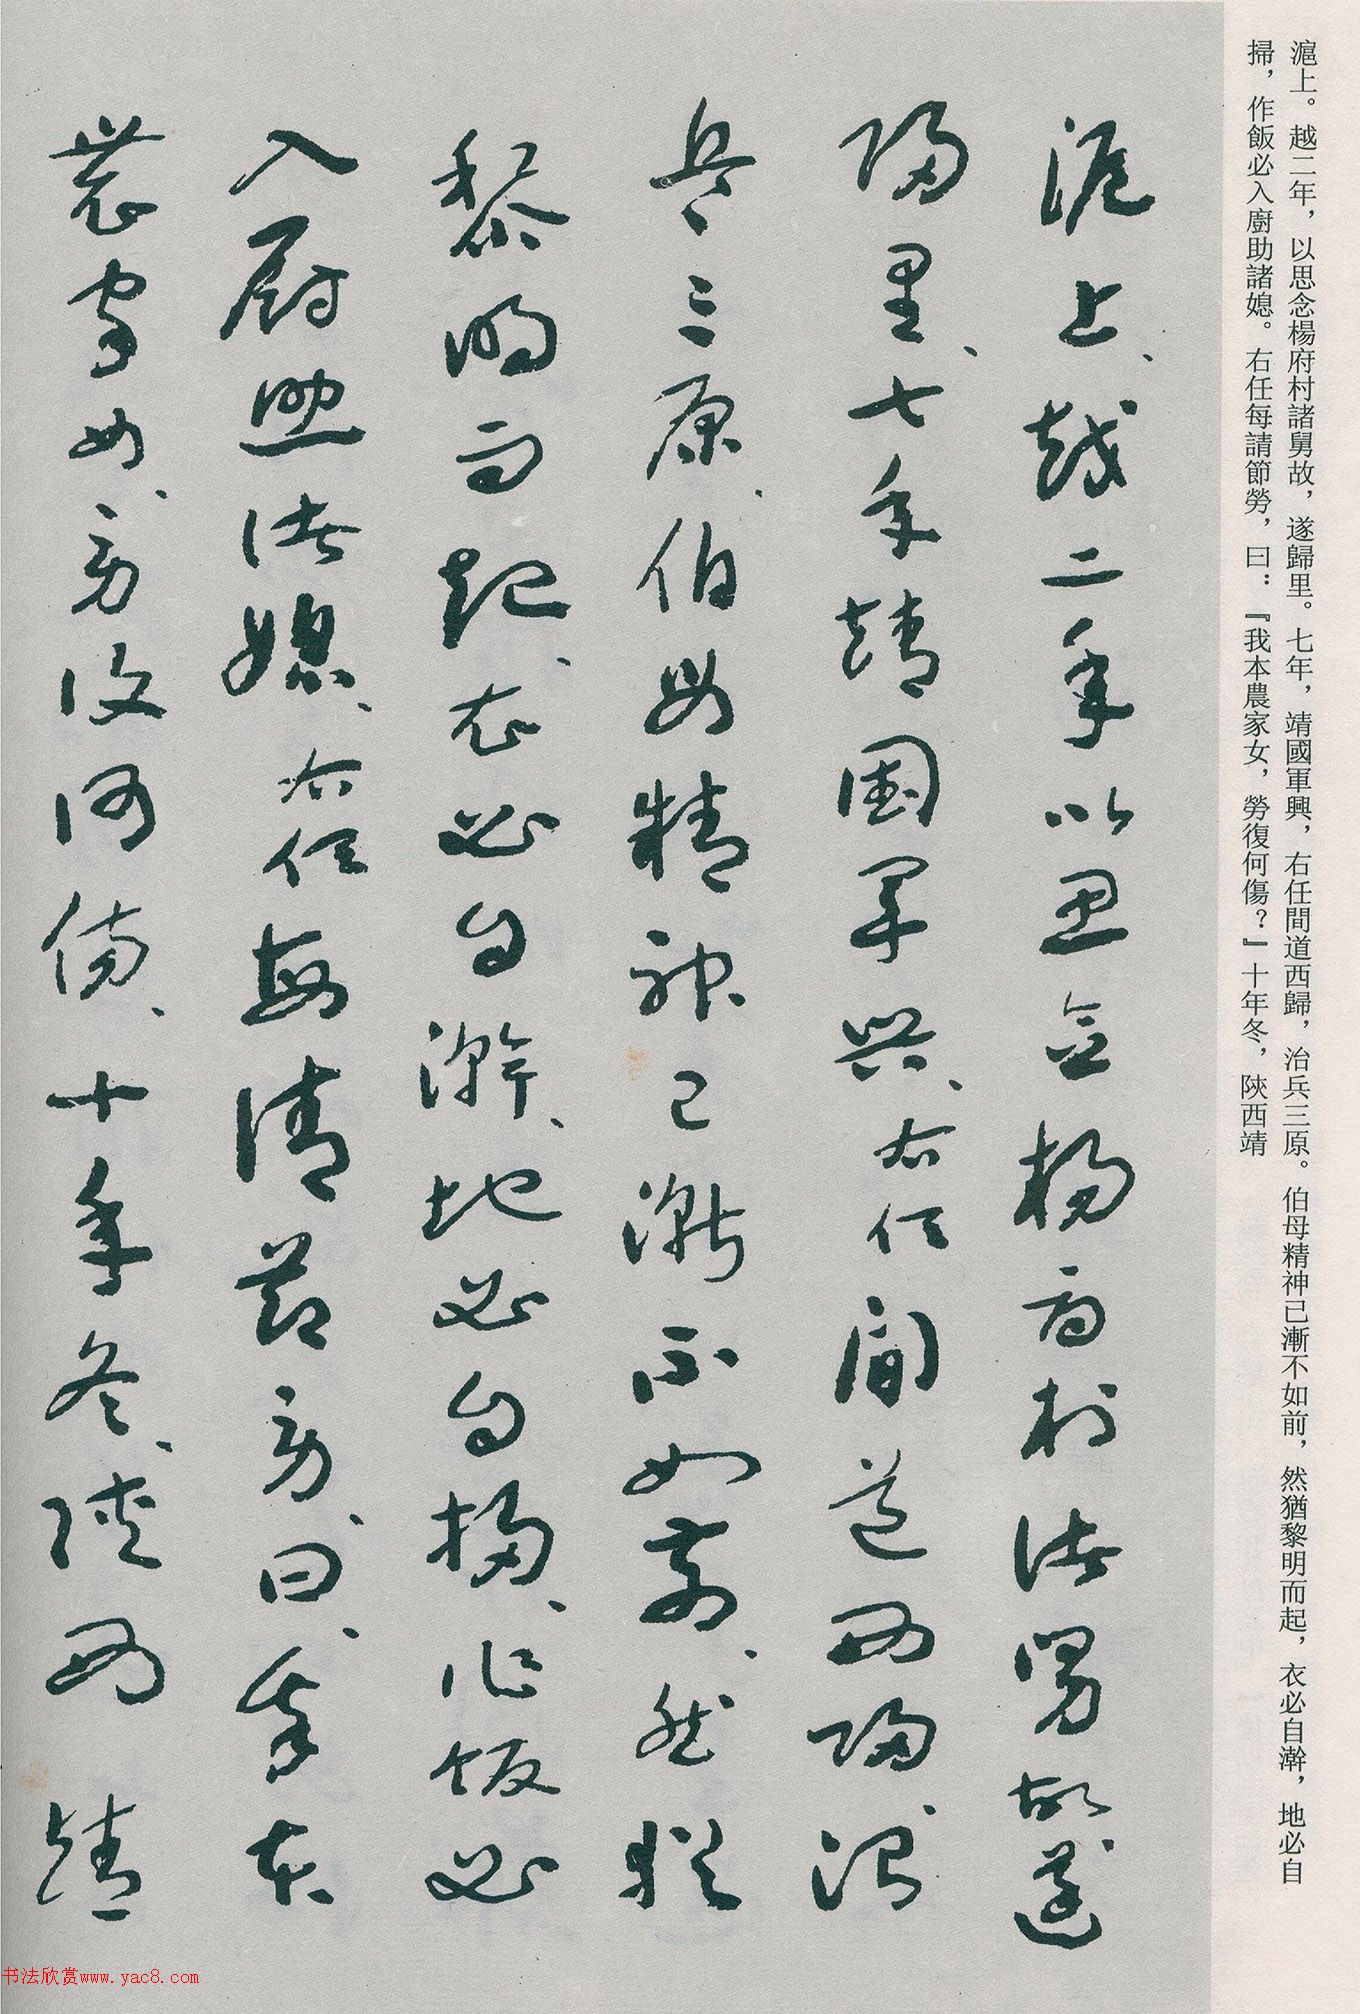 滬上。越二年，以思念楊府村諸舅故，遂歸里。七年，靖國軍興，右任間道西歸，治兵三原。伯母精神已漸不如前，然猶黎明而起，衣必自澣，地必自
掃，作飯必入廚助諸媳。右任每請節勞，曰：『我本農家女，勞復何傷？』十年冬，陝西靖
滬上、越二年以思念楊府村諸舅故遂
歸里、七年靖國軍興、右任間道西歸、治
兵三原、伯母精神已漸不如前、然猶
黎明而起、衣必自澣、地必自掃、作飯必
入廚助諸媳、右任每請節勞、曰、我本
農家女、勞復何傷、十年冬、陝西靖
书法欣赏www.yac8.com